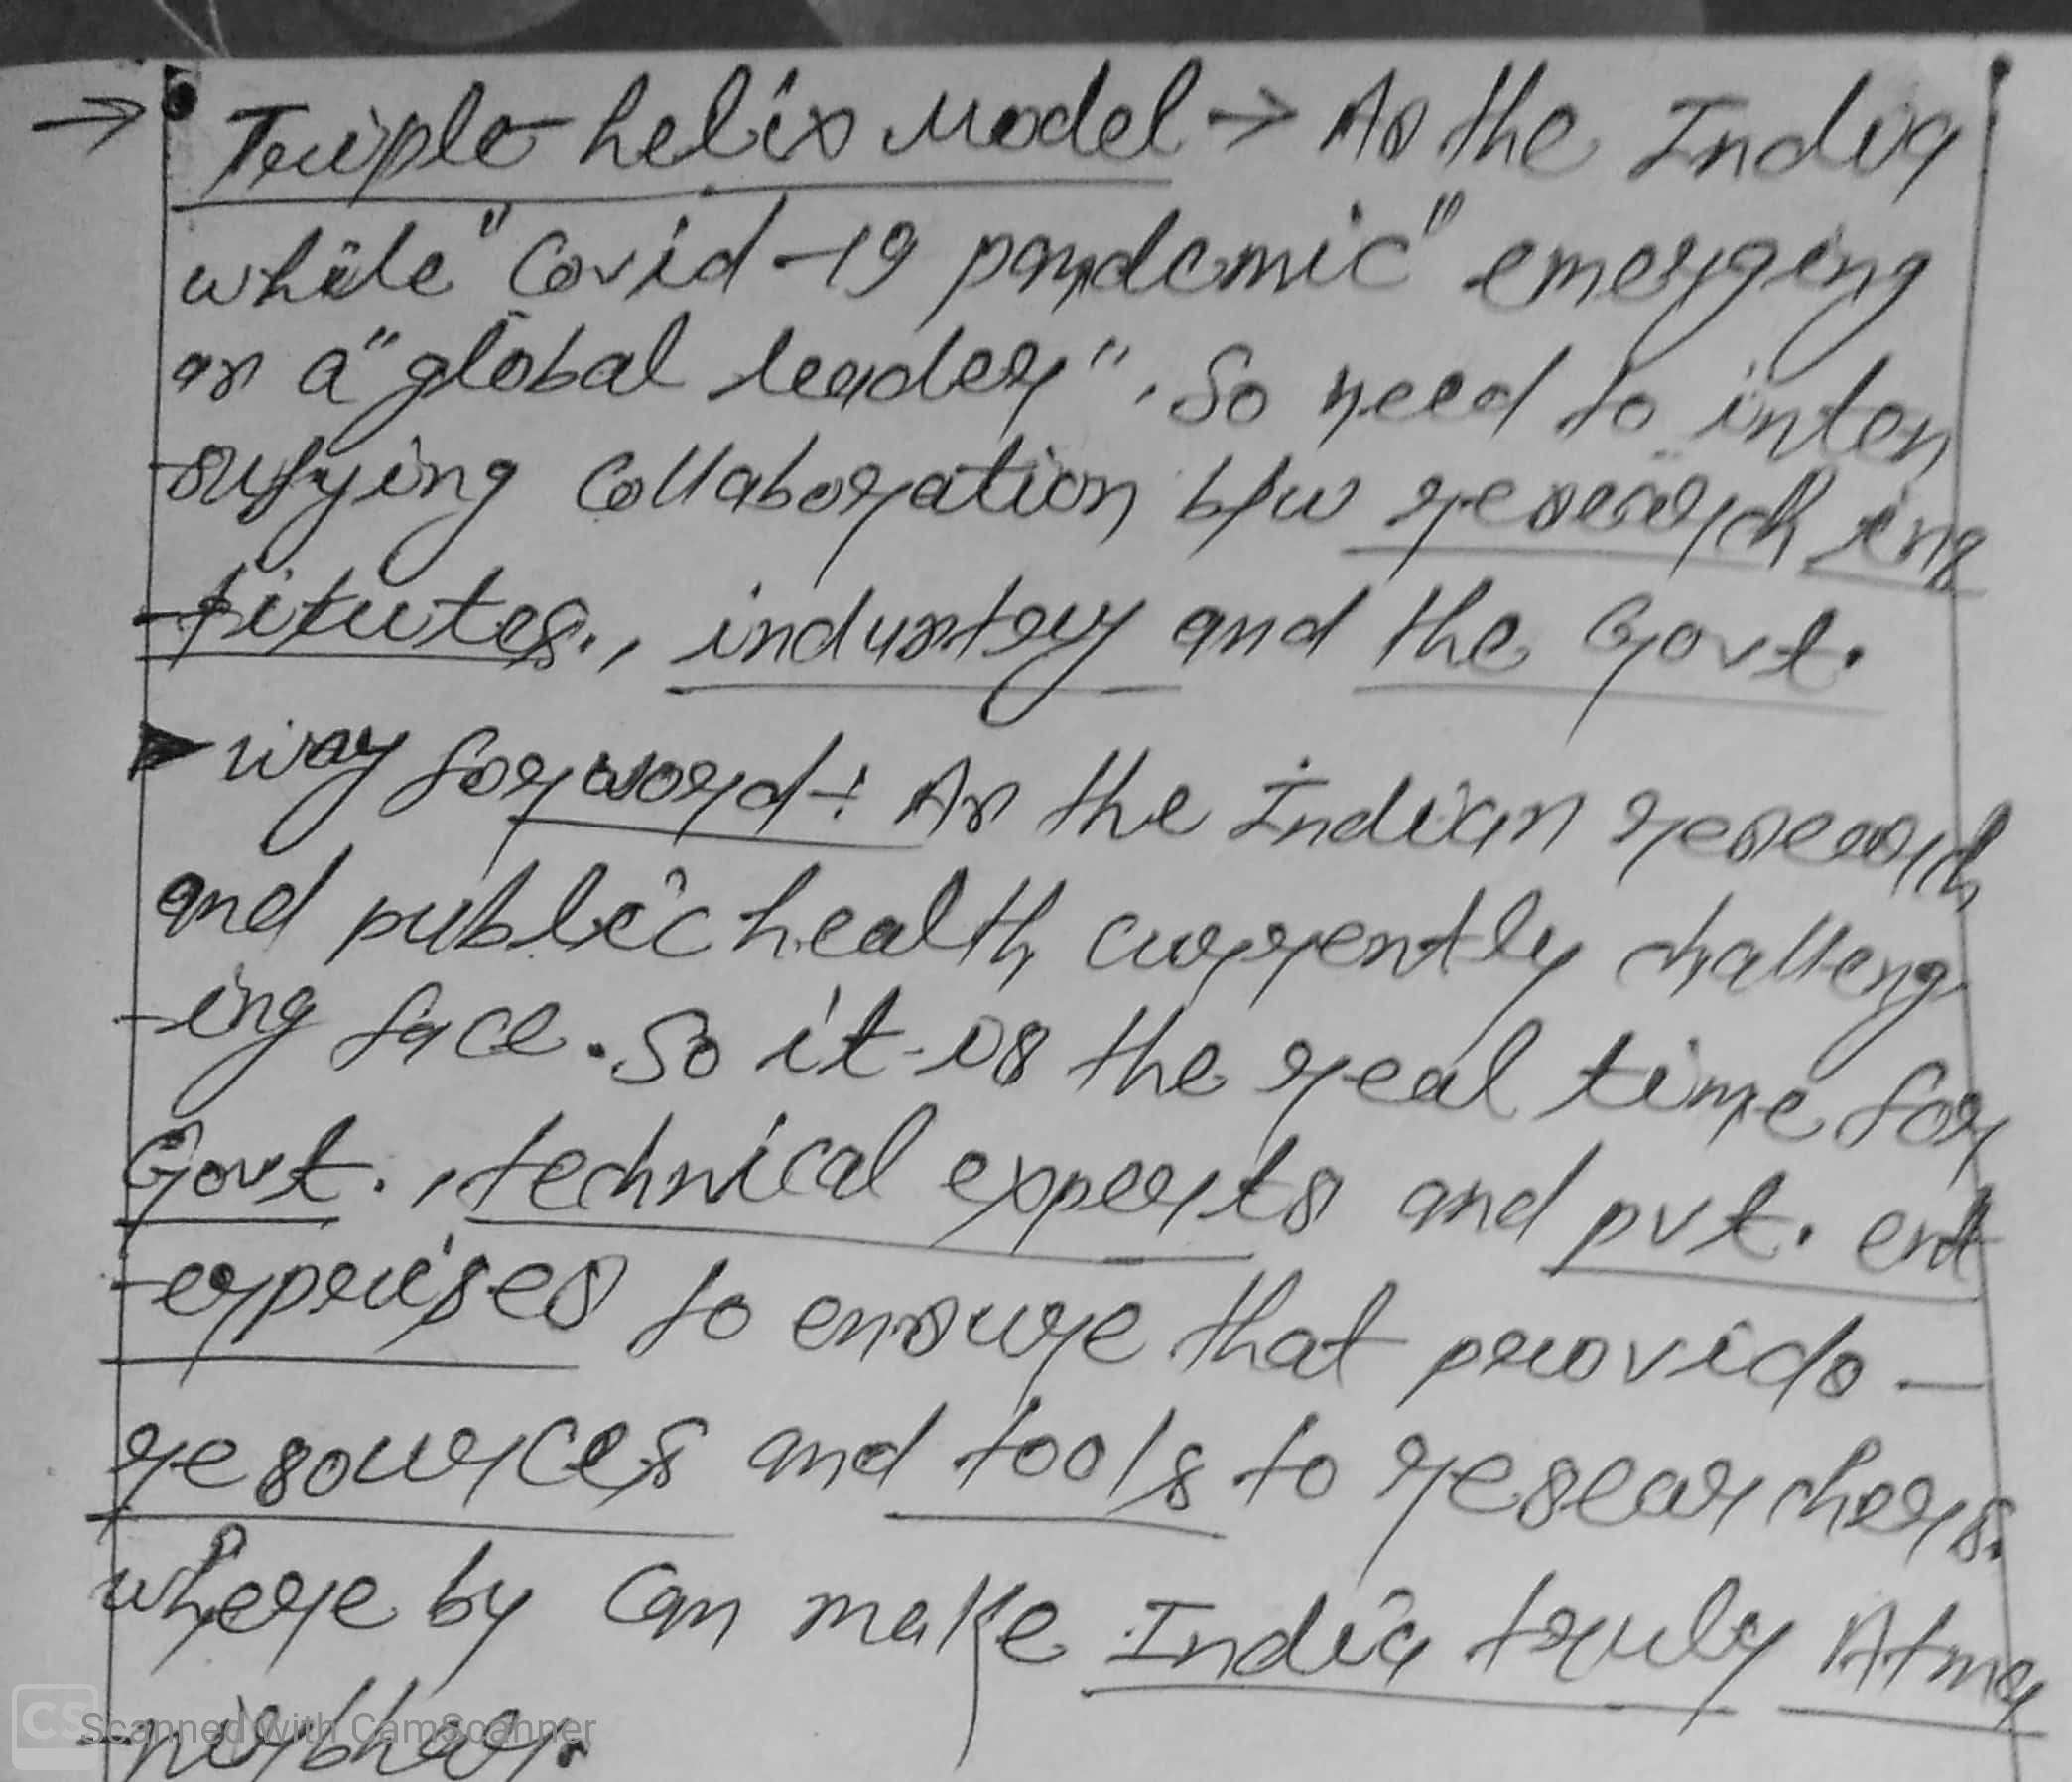 → • Triple helix Model → As the India
while "Covid-19 pandemic" emerging
as a "global leader". So need to inten
-sifying Collaboration b/w research ins
-titutes., industry and the Govt.
► way forword : As the Indian research
and public health currently challeng
-ing face. So it is the real time for
Govt., technical experts and pvt. ent
-erprises to ensure that provide -
resources and tools to researchers.
where by can make India truly Atma
-nirbhar.
CS Scanned with CamScanner